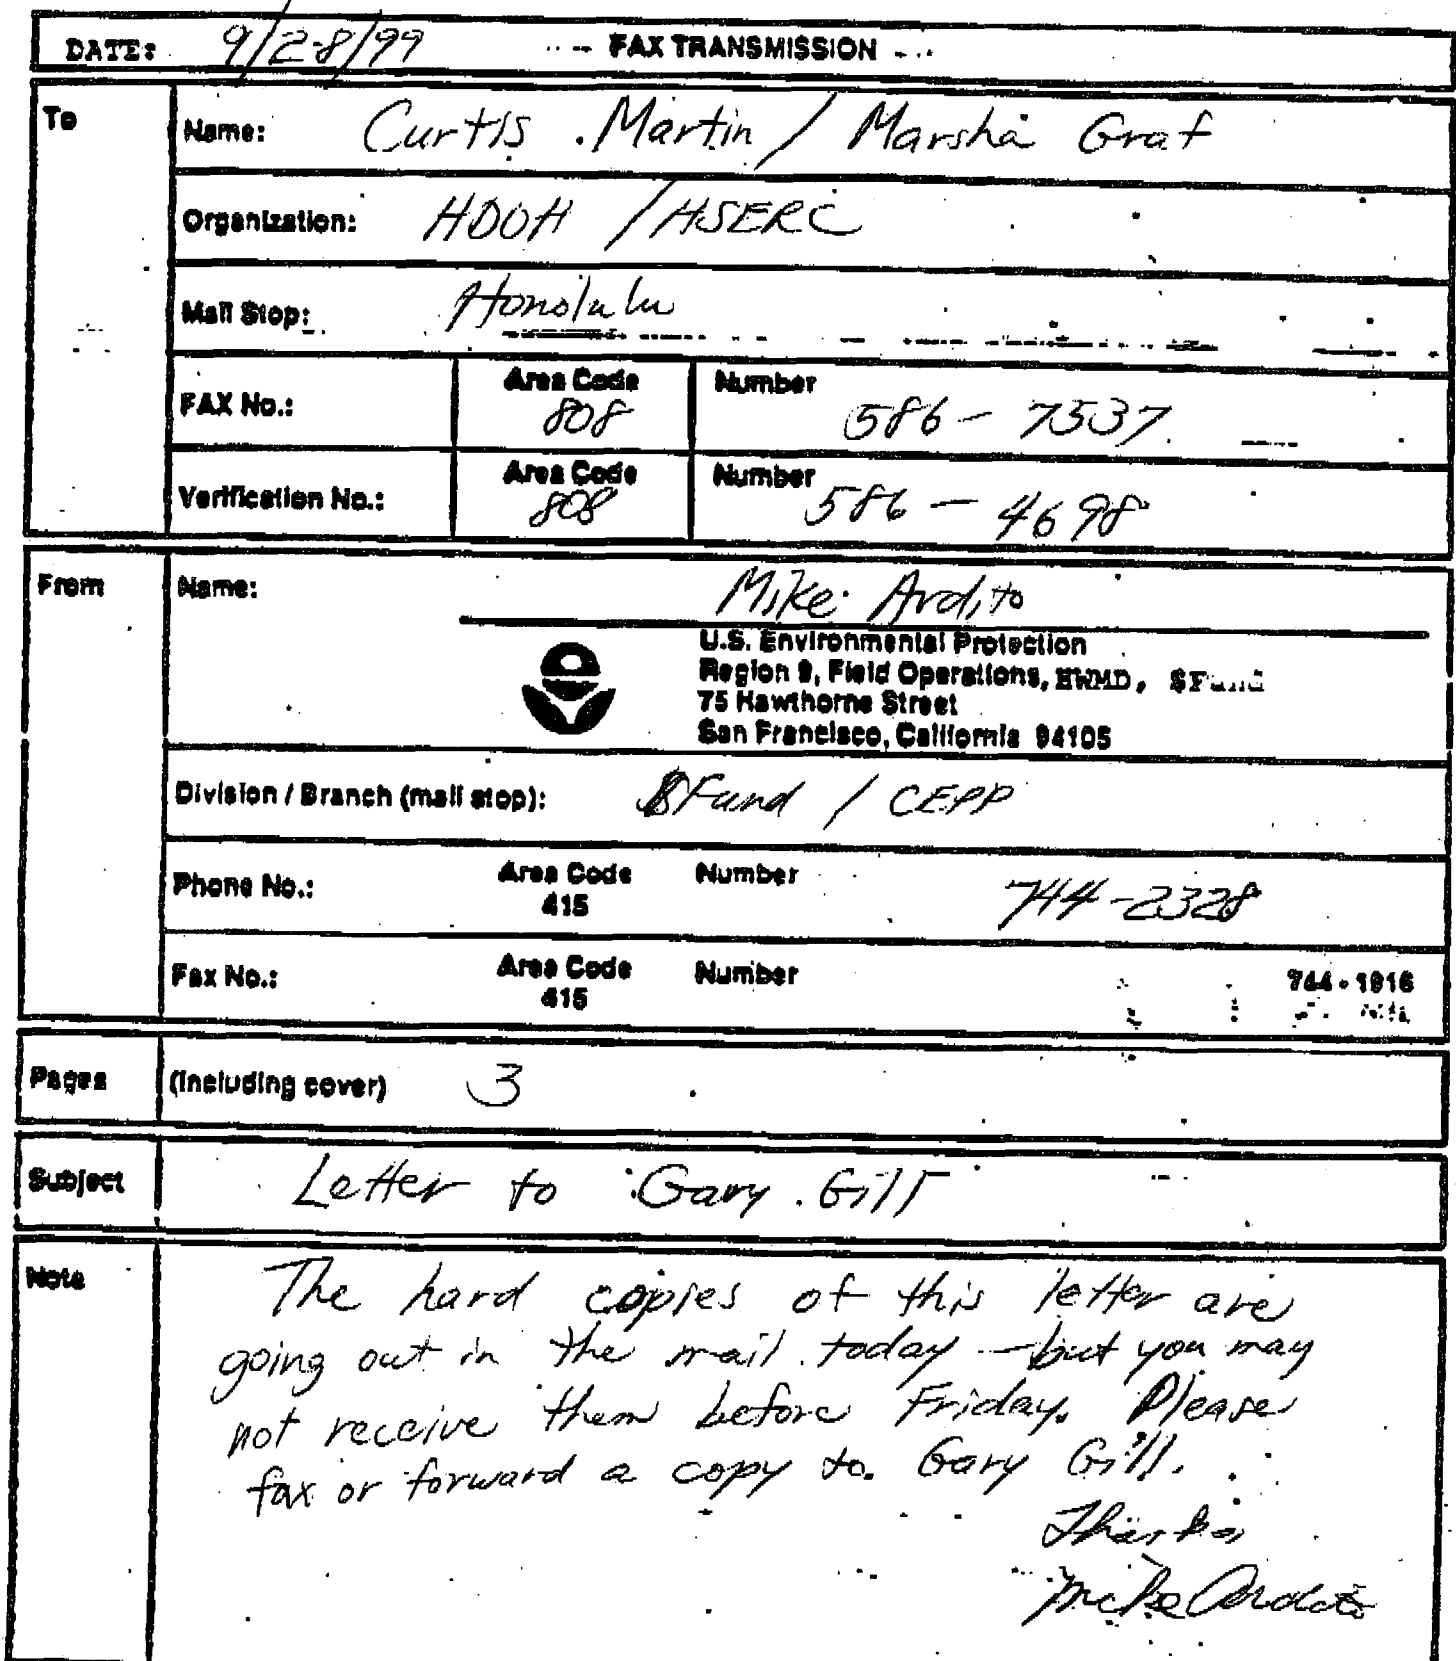 DATE: 9/28/99 -- FAX TRANSMISSION --
To
Name: Curtis Martin / Marsha Graf
Organization: HDOH / HSERC
Mail Stop: Honolulu
FAX No.: Area Code 808 Number 586-7537
Verification No.: Area Code 808 Number 586-4698
From
Name: Mike Ardito
U.S. Environmental Protection
Region 9, Field Operations, HWMD, $Fund
75 Hawthorne Street
San Francisco, California 94105
Division / Branch (mail stop): $Fund / CEPP
Phone No.: Area Code 415 Number 744-2328
Fax No.: Area Code 415 Number 744-1916
Pages (including cover) 3
Subject Letter to Gary Gill
Note
The hard copies of this letter are
going out in the mail today - but you may
not receive them before Friday. Please
fax or forward a copy to Gary Gill.
Thanks
Mike Ardito